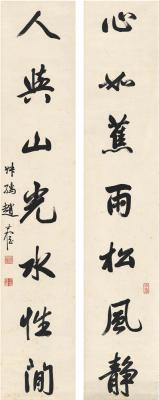 心如蕉雨松風静
人與山光水性閒
叔孺趙